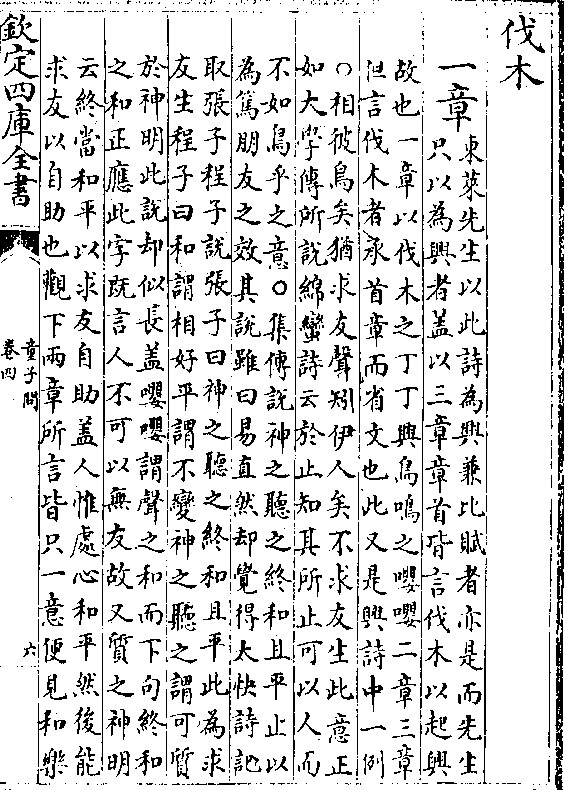 伐木
一章東萊先生以此詩為興兼比賦者亦是而先生
只以為興者盖以三章章首皆言伐木以起興
故也一章以伐木之丁丁興鳥鳴之嚶嚶二章三章
但言伐木者承首章而省文也此又是興詩中一例
○相彼鳥矣猶求友聲矧伊人矣不求友生此意正
如大學傳所說綿蠻詩云於止知其所止可以人而
不如鳥乎之意○集傳說神之聽之終和且平止以
為篤朋友之效其說雖曰易直然却覺得太快詩記
取張子程子說張子曰神之聽之終和且平此為求
友生程子曰和謂相好平謂不變神之聽之謂可質
於神明此說却似長盖嚶嚶謂聲之和而下句終和
之和正應此字既言人不可以無友故又質之神明
云終當和平以求友自助盖人惟處心和平然後能
求友以自助也觀下兩章所言皆只一意便見和樂
欽定四庫全書
童子問
卷四
六